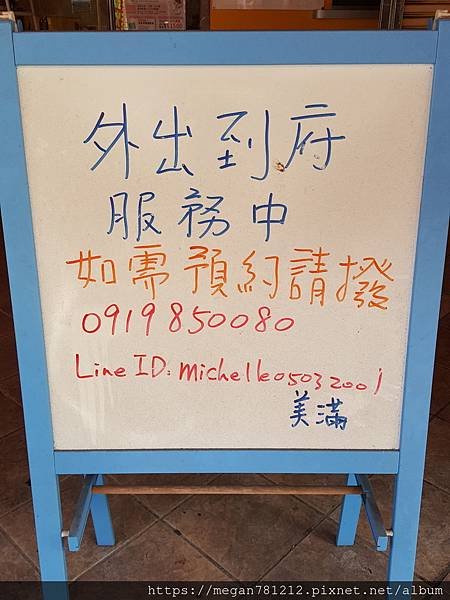 外出到府
服務中
如需預約請撥
0919850080
Line ID: michelle05032001
美滿
https://megan781212.pixnet.net/album